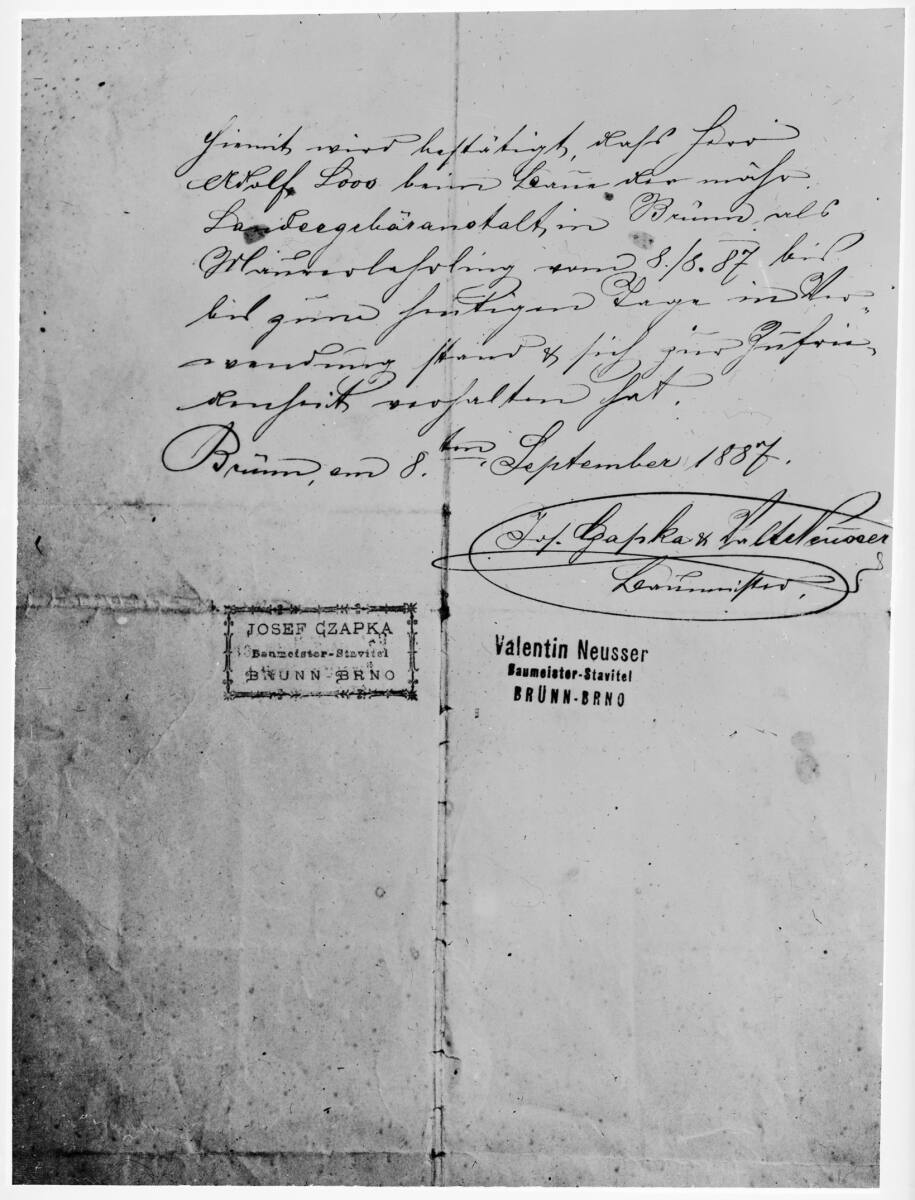 Hiemit wird bestätigt, dass Herr
Adolf Loos beim Baue der mähr.
Landesgebäranstalt, in Brünn, als
Maurerlehrling vom 8./8. 87 bis
bis zum heutigen Tage in Ver-
wendung stand & sich zur Zufrie-
denheit verhalten hat.
Brünn, am 8.ten September 1887.
Jos. Czapka & Val. Neusser
Baumeister.
JOSEF CZAPKA
Baumeister-Stavitel
BRÜNN-BRNO
Valentin Neusser
Baumeister-Stavitel
BRÜNN-BRNO